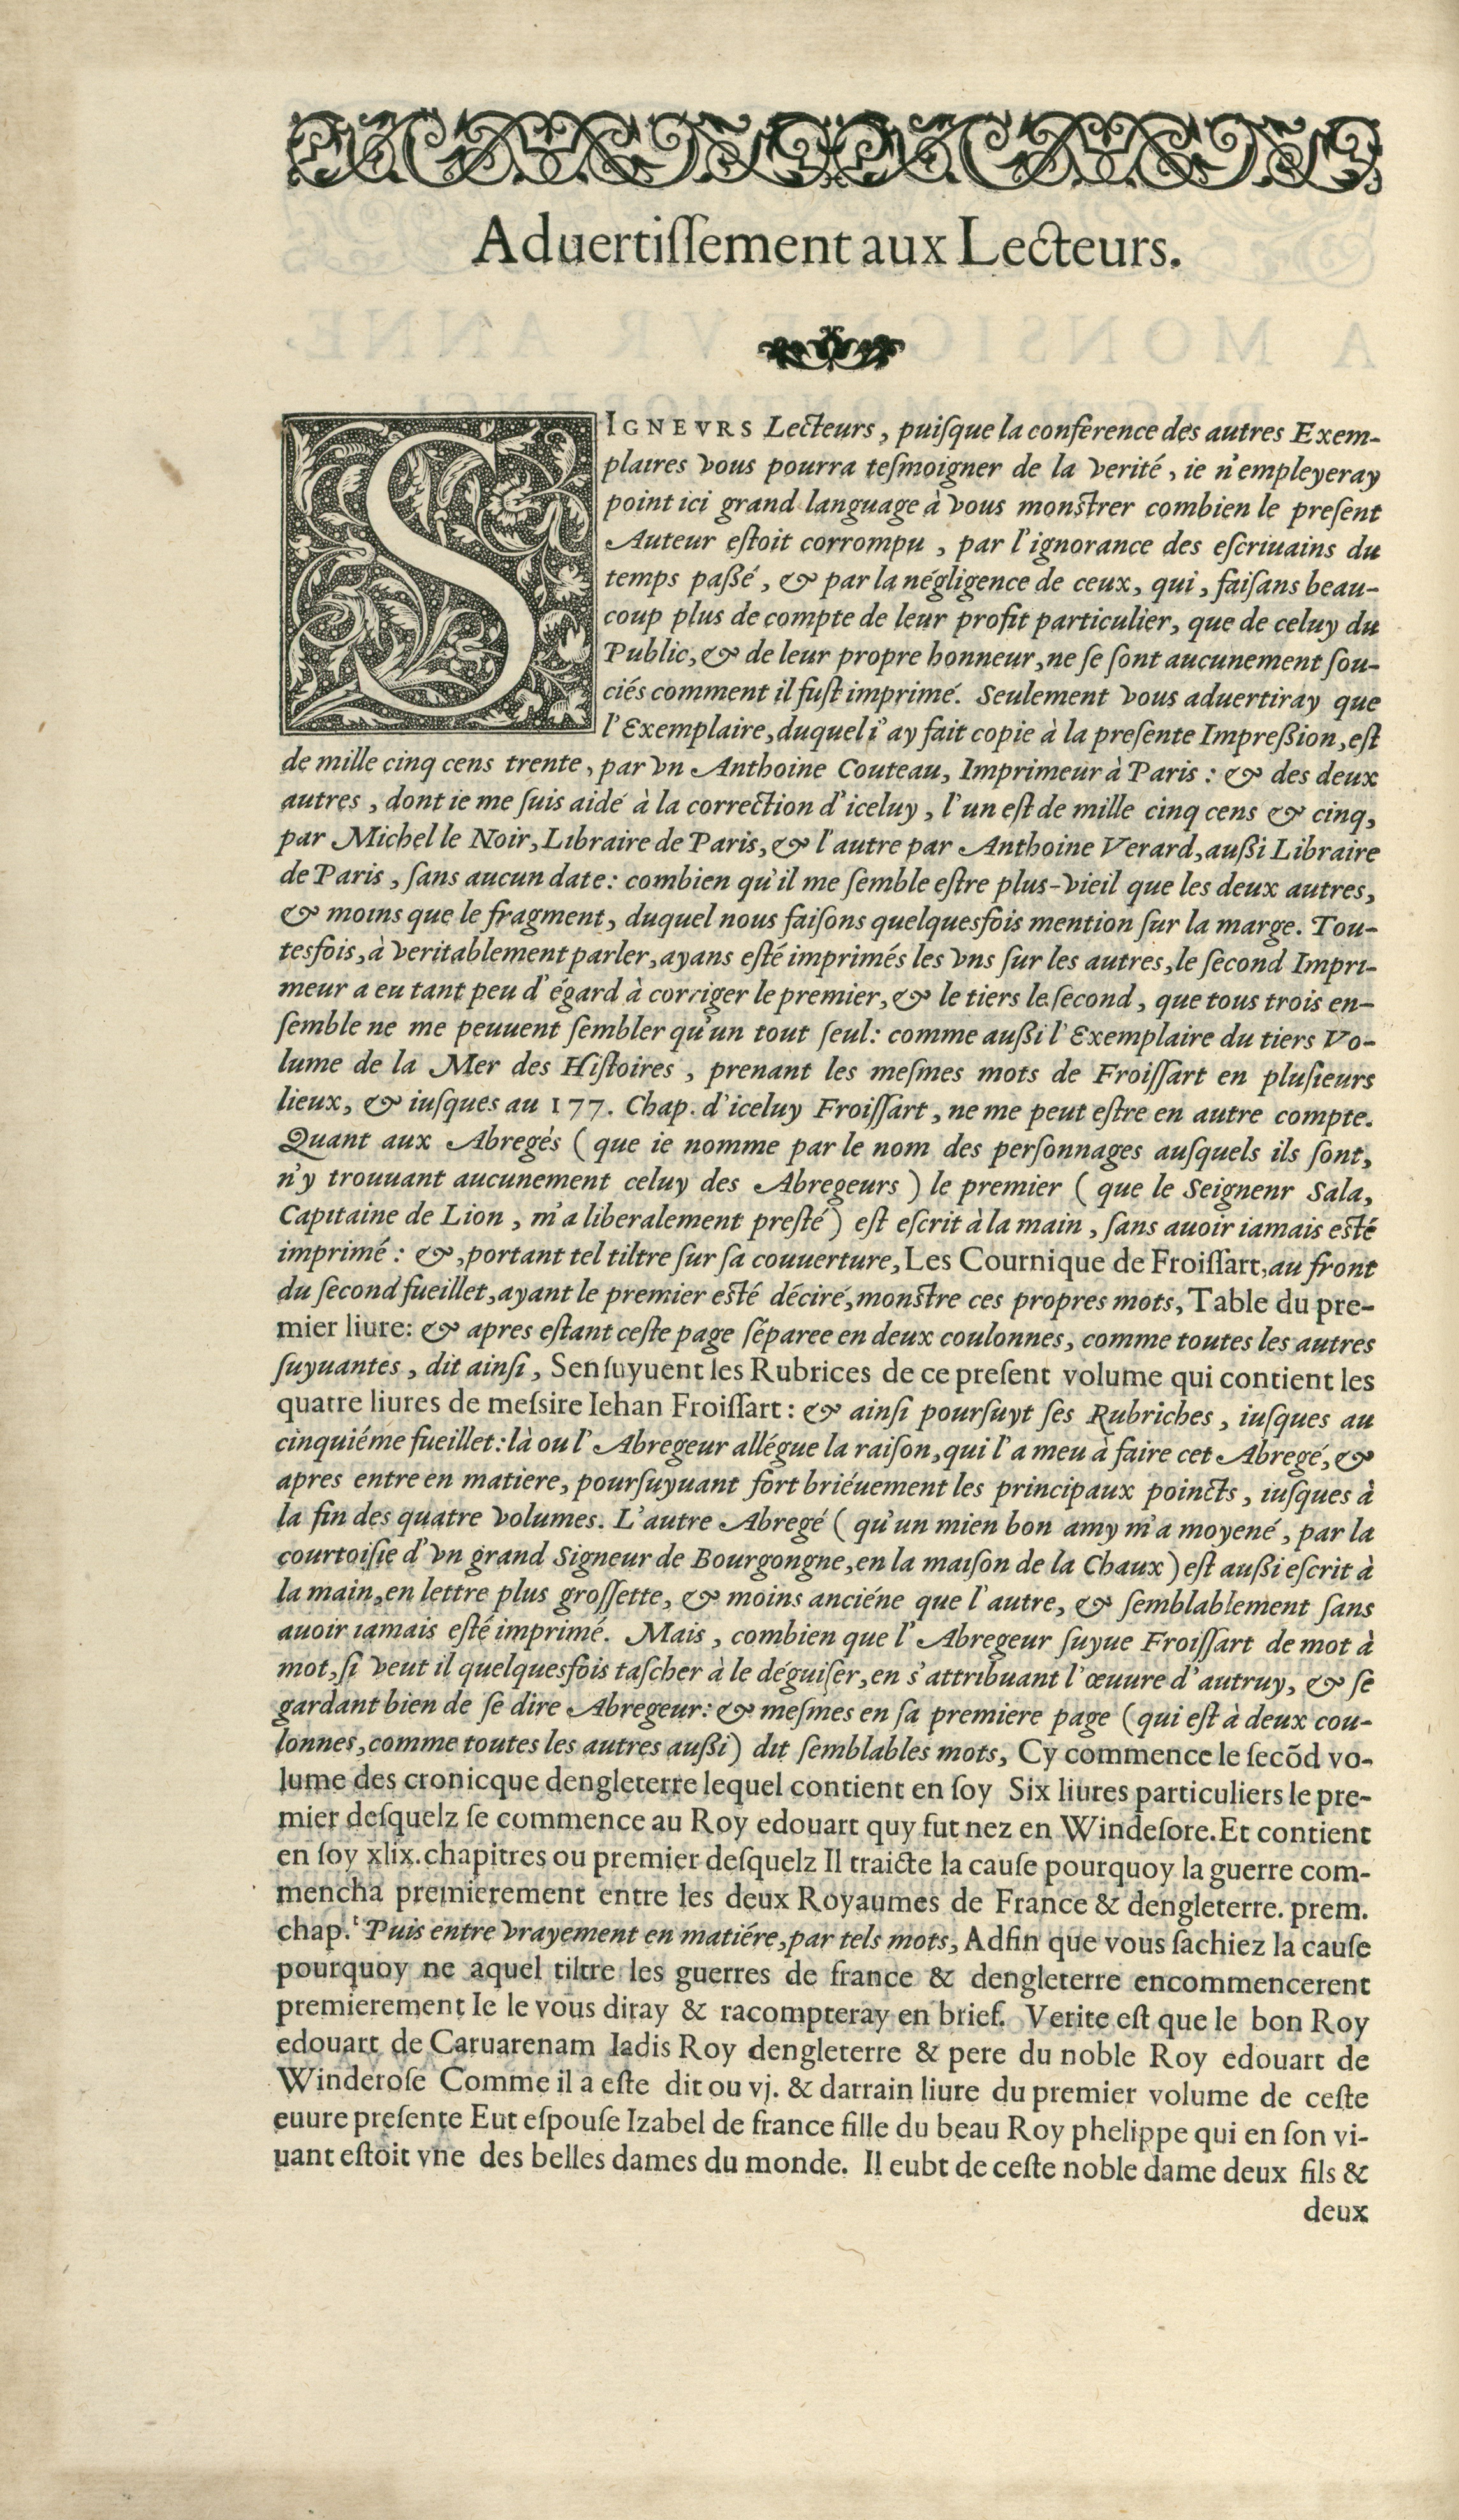 Aduertiſſement aux Lecteurs.
SIGNEVRS Lecteurs, puiſque la conference des autres Exem-
plaires vous pourra teſmoigner de la verité, ie n'empleyeray
point ici grand language à vous monſtrer combien le preſent
Auteur eſtoit corrompu, par l'ignorance des eſcriuains du
temps paßé, & par la négligence de ceux, qui, faiſans beau-
coup plus de compte de leur profit particulier, que de celuy du
Public, & de leur propre honneur, ne ſe ſont aucunement ſou-
ciés comment il fuſt imprimé. Seulement vous aduertiray que
l'Exemplaire, duquel i'ay fait copie à la preſente Impreßion, eſt
de mille cinq cens trente, par vn Anthoine Couteau, Imprimeur à Paris: & des deux
autres, dont ie me ſuis aidé à la correction d'iceluy, l'un eſt de mille cinq cens & cinq,
par Michel le Noir, Libraire de Paris, & l'autre par Anthoine Verard, außi Libraire
de Paris, ſans aucun date: combien qu'il me ſemble eſtre plus-vieil que les deux autres,
& moins que le fragment, duquel nous faiſons quelquesfois mention ſur la marge. Tou-
tesfois, à veritablement parler, ayans eſté imprimés les vns ſur les autres, le ſecond Impri-
meur a eu tant peu d'égard à corriger le premier, & le tiers le ſecond, que tous trois en-
ſemble ne me peuuent ſembler qu'un tout ſeul: comme außi l'Exemplaire du tiers Vo-
lume de la Mer des Hiſtoires, prenant les meſmes mots de Froiſſart en pluſieurs
lieux, & iuſques au 177. Chap. d'iceluy Froiſſart, ne me peut eſtre en autre compte.
Quant aux Abregés (que ie nomme par le nom des perſonnages auſquels ils ſont,
n'y trouuant aucunement celuy des Abregeurs) le premier (que le Seignenr Sala,
Capitaine de Lion, m'a liberalement preſté) eſt eſcrit à la main, ſans auoir iamais eſté
imprimé: &, portant tel tiltre ſur ſa couuerture, Les Cournique de Froiſſart, au front
du ſecond fueillet, ayant le premier eſté déciré, monſtre ces propres mots, Table du pre-
mier liure: & apres eſtant ceſte page ſéparee en deux coulonnes, comme toutes les autres
ſuyuantes, dit ainſi, Senſuyuent les Rubrices de ce preſent volume qui contient les
quatre liures de meſsire Iehan Froiſſart: & ainſi pourſuyt ſes Rubriches, iuſques au
cinquiéme fueillet: là ou l'Abregeur allégue la raiſon, qui l'a meu à faire cet Abregé, &
apres entre en matiere, pourſuyuant fort briéuement les principaux poincts, iuſques à
la fin des quatre volumes. L'autre Abregé (qu'un mien bon amy m'a moyené, par la
courtoiſie d'vn grand Signeur de Bourgongne, en la maiſon de la Chaux) eſt außi eſcrit à
la main, en lettre plus groſſette, & moins anciéne que l'autre, & ſemblablement ſans
auoir iamais eſté imprimé. Mais, combien que l'Abregeur ſuyue Froiſſart de mot à
mot, ſi veut il quelquesfois taſcher à le déguiſer, en s'attribuant l'œuure d'autruy, & ſe
gardant bien de ſe dire Abregeur: & meſmes en ſa premiere page (qui eſt à deux cou-
lonnes, comme toutes les autres außi) dit ſemblables mots, Cy commence le ſecõd vo-
lume des cronicque dengleterre lequel contient en ſoy Six liures particuliers le pre-
mier deſquelz ſe commence au Roy edouart quy fut nez en Windeſore. Et contient
en ſoy xlix. chapitres ou premier deſquelz Il traicte la cauſe pourquoy la guerre com-
mencha premierement entre les deux Royaumes de France & dengleterre. prem.
chap.ᵗ Puis entre vrayement en matiére, par tels mots, Adfin que vous ſachiez la cauſe
pourquoy ne aquel tiltre les guerres de france & dengleterre encommencerent
premierement Ie le vous diray & racompteray en brief. Verite eſt que le bon Roy
edouart de Caruarenam Iadis Roy dengleterre & pere du noble Roy edouart de
Winderoſe Comme il a eſte dit ou vj. & darrain liure du premier volume de ceſte
euure preſente Eut eſpouſe Izabel de france fille du beau Roy phelippe qui en ſon vi-
uant eſtoit vne des belles dames du monde. Il eubt de ceſte noble dame deux fils &
deux